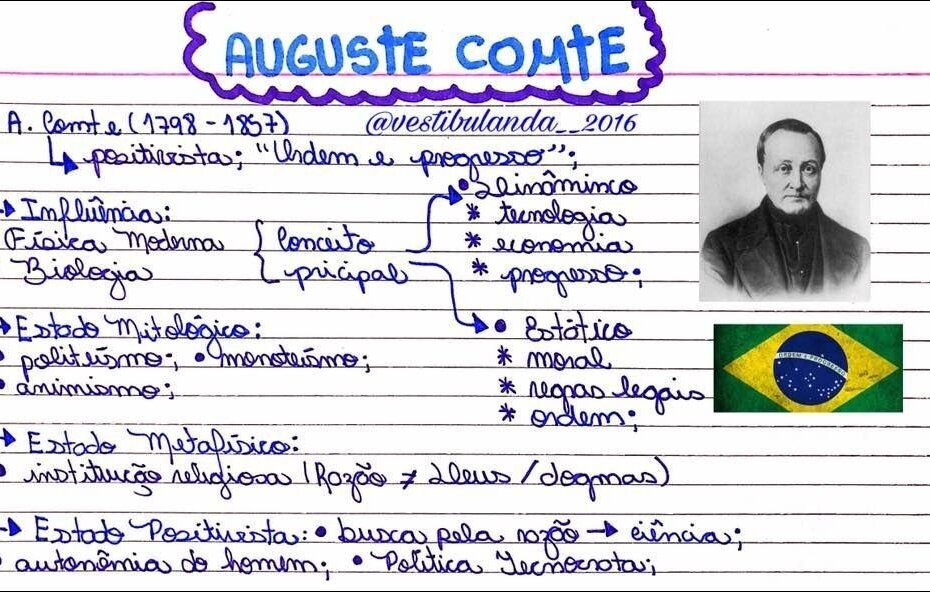 AUGUSTE COMTE
A. Comte (1798 - 1857)
@vestibulanda__2016
positivista; "Ordem e progresso";
Influência:
Física Moderna
Biologia
Conceito
pricipal
• Dinâminco
* tecnologia
* economia
* progresso;
• Estático
* moral
* regras legais
* ordem;
Estado Mitológico:
• politeísmo; • monoteísmo;
• animismo;
Estado Metafísico:
• instituição religiosa (Razão ≠ Deus / dogmas)
→ Estado Positivista: • busca pela razão → ciência;
• autonômia do homem; • Política Tecnocrata;
ORDEM E PROGRESSO